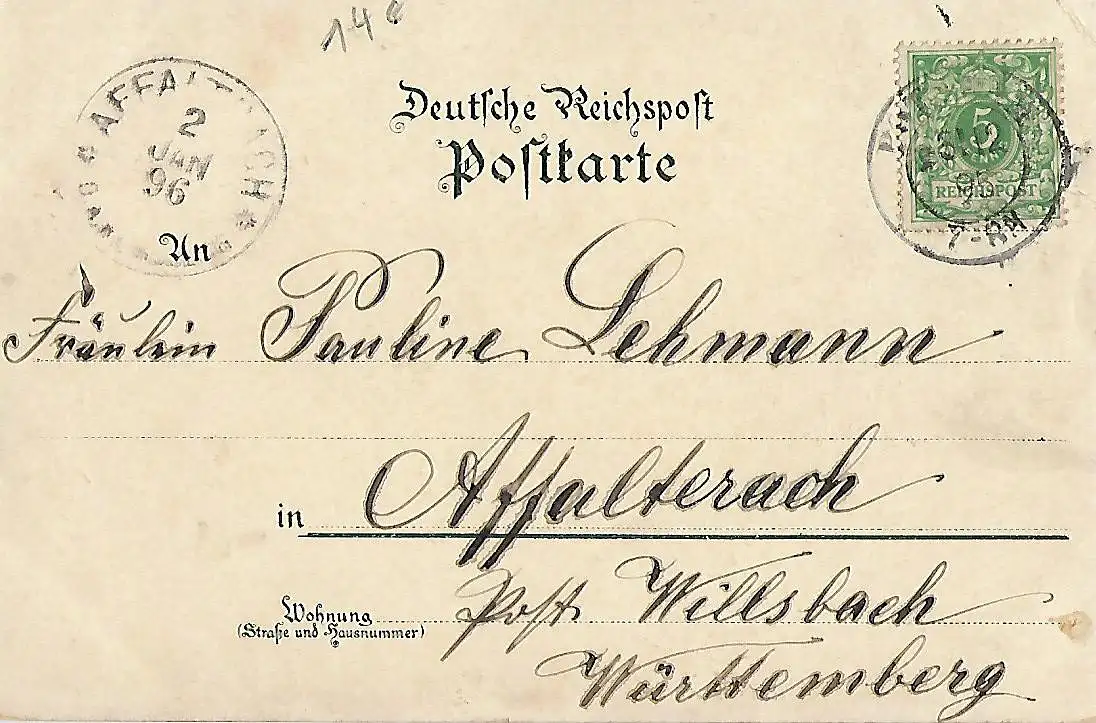 14
Deutsche Reichspost
Postkarte
2
JAN
96
5
REICHSPOST
7-8N
An
Fräulein Pauline Lehmann
in Affalterach
Post Willsbach
Wohnung
(Straße und Hausnummer)
Württemberg